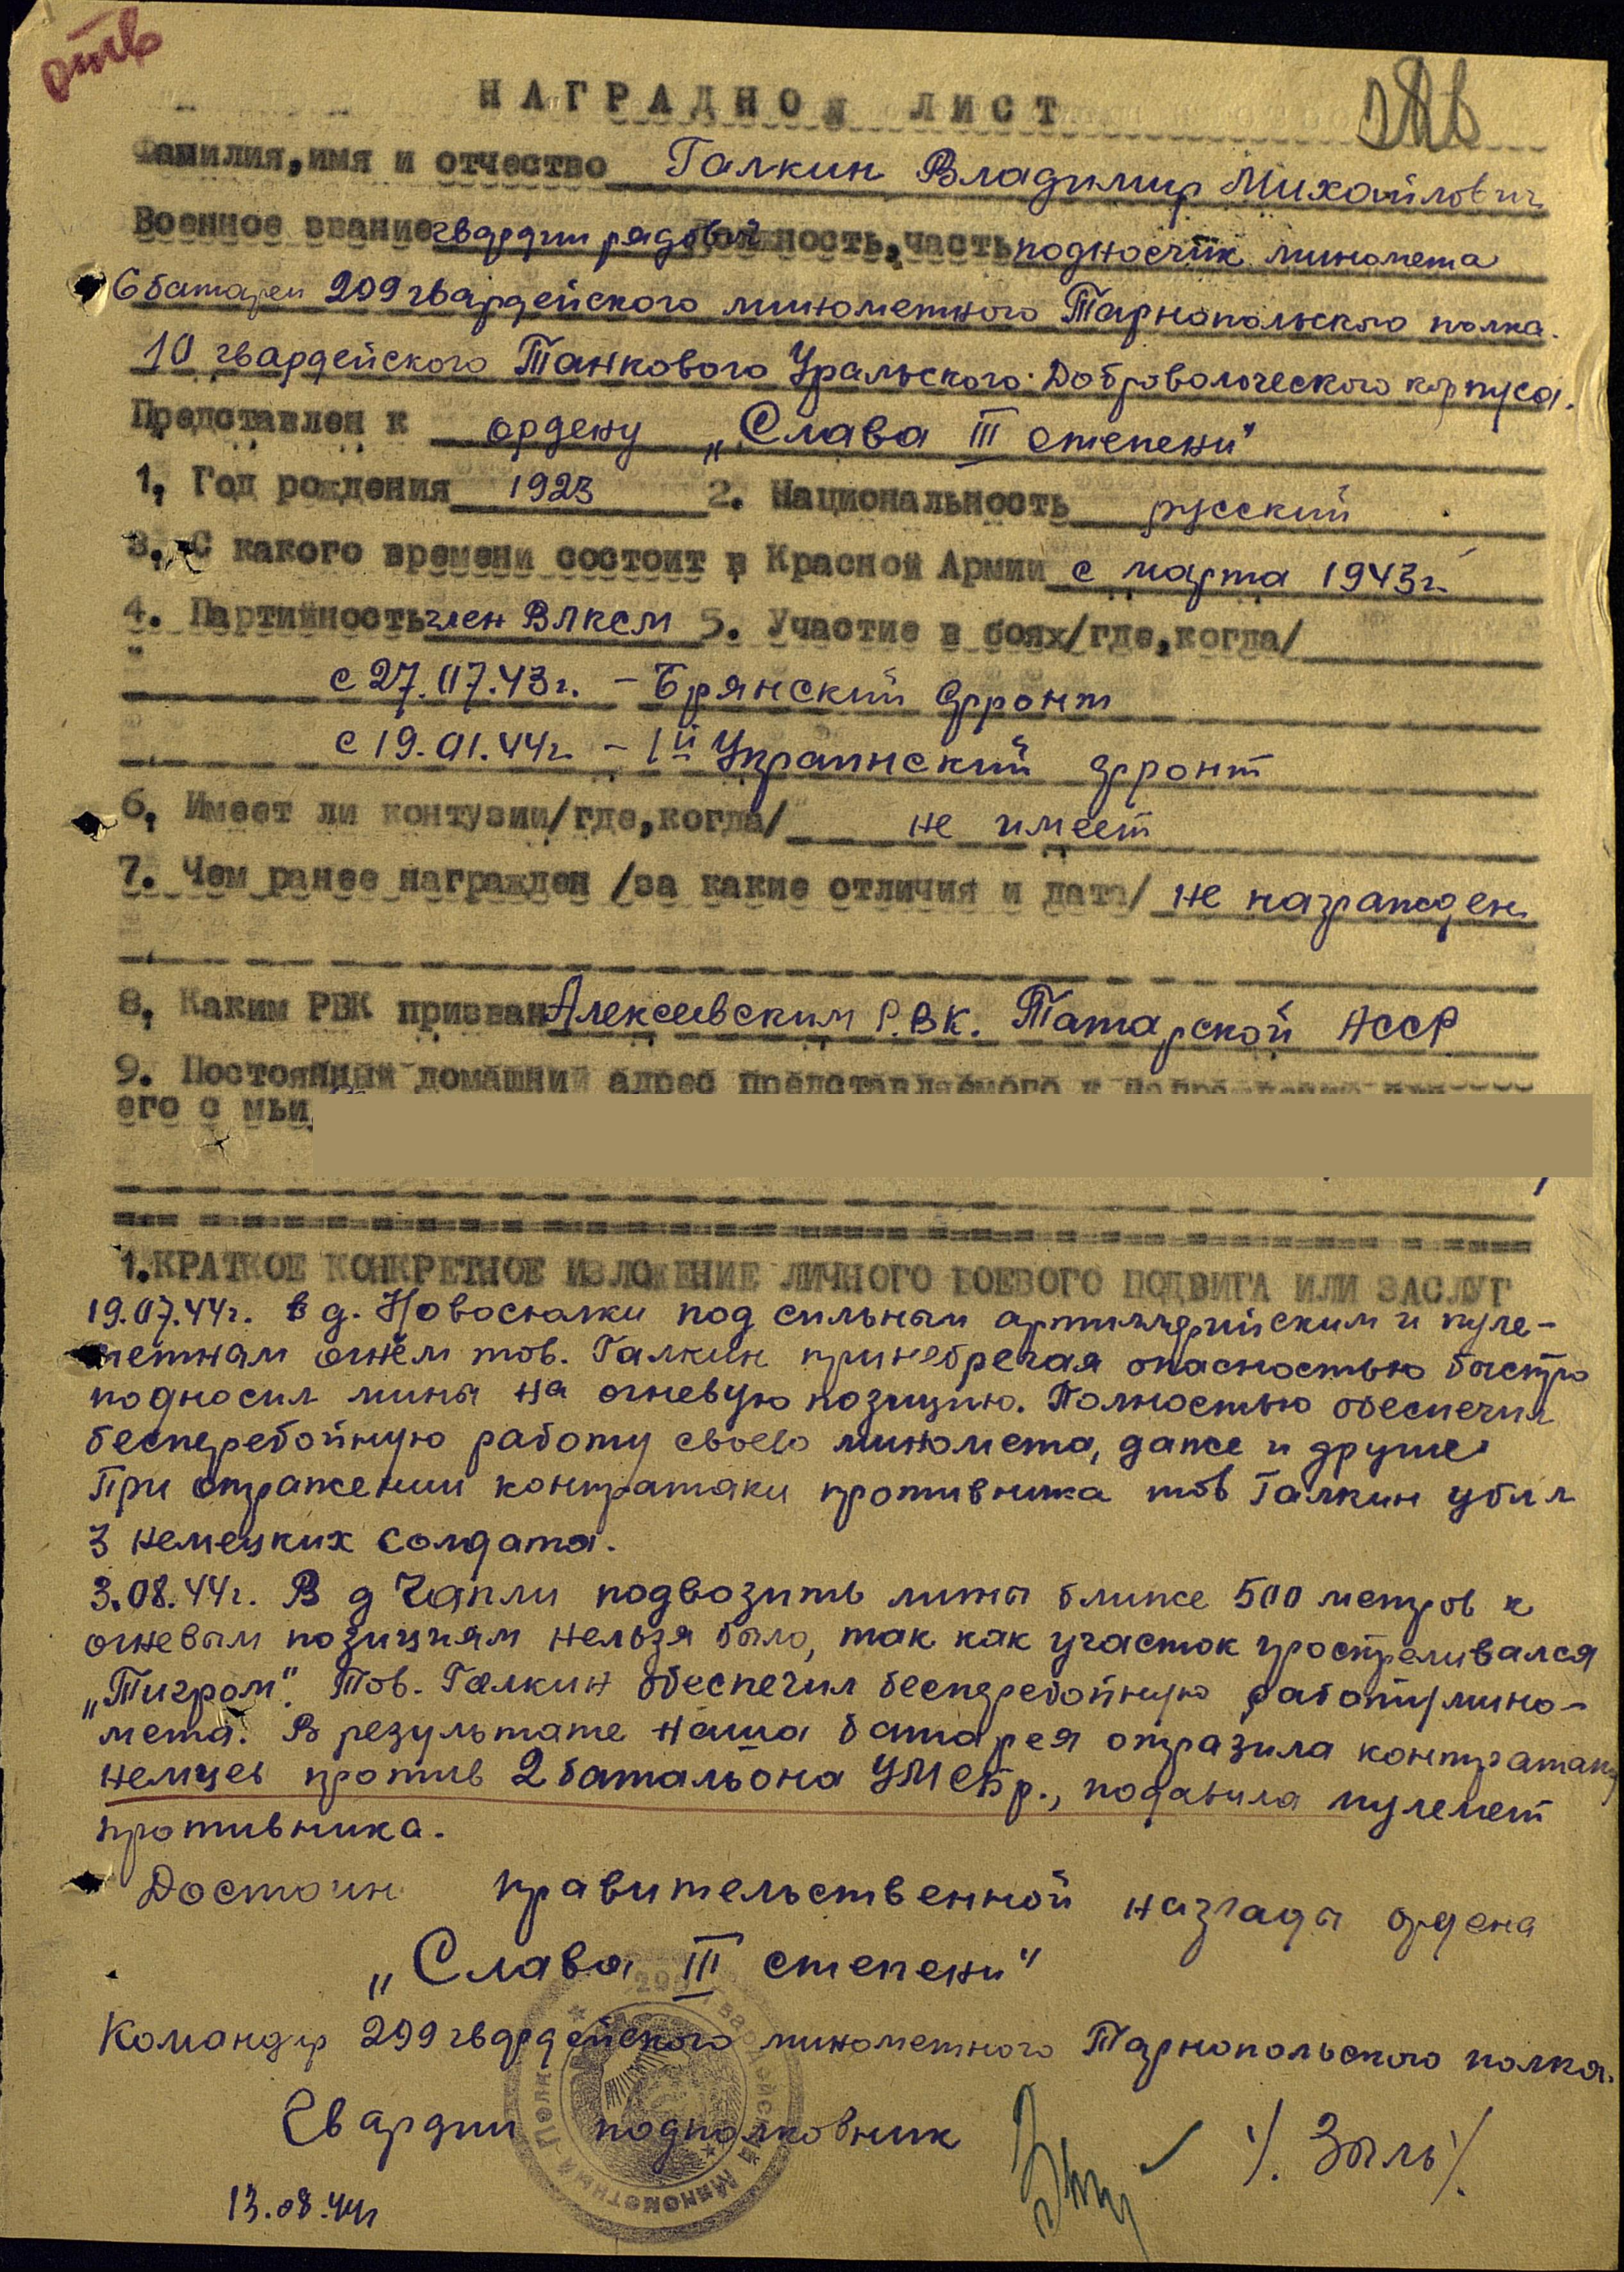 отв
НАГРАДНОЙ ЛИСТ
Фамилия, имя и отчество Галкин Владимир Михайлович
Военное звание гвардии рядовой должность, часть подносчик миномета
6 батареи 299 гвардейского минометного Тарнопольского полка.
10 гвардейского Танкового Уральского Добровольческого корпуса.
Представлен к ордену „Слава III степени"
1. Год рождения 1923 2. Национальность русский
3. С какого времени состоит в Красной Армии с марта 1943г.
4. Партийность член ВЛКСМ 5. Участие в боях/где, когда/
с 27.07.43г. - Брянский фронт
с 19.01.44г - 1й Украинский фронт
6. Имеет ли контузии/где, когда/ не имеет
7. Чем ранее награжден /за какие отличия и дата/ не награжден
8. Каким РВК призван Алексеевским Р.В.К. Татарской АССР
9. Постоянный домашний адрес представляемого к награждению или
его с мьи
1. КРАТКОЕ КОНКРЕТНОЕ ИЗЛОЖЕНИЕ ЛИЧНОГО БОЕВОГО ПОДВИГА ИЛИ ЗАСЛУГ
19.07.44г. в д. Новосюлки под сильным артиллерийским и пуле-
метным огнём тов. Галкин принебрегая опасностью быстро
подносил мины на огневую позицию. Полностью обеспечил
бесперебойную работу своего миномета, даже и другие
При отражении контратаки противника тов Галкин убил
3 немецких солдата.
3.08.44г. В д Чапли подвозить мины ближе 500 метров к
огневым позициям нельзя было, так как участок простреливался
„Тигром". Тов. Галкин обеспечил бесперебойную работу мино-
мета. В результате наша батарея отразила контратаку
немцев против 2 батальона УМСБр., подавила пулемет
противника.
Достоин правительственной награды ордена
„Слава III степени"
Командир 299 гвардейского минометного Тарнопольского полка.
Гвардии подполковник /. Зыль/.
13.08.44г
299 Гвардейский Минометный Полк